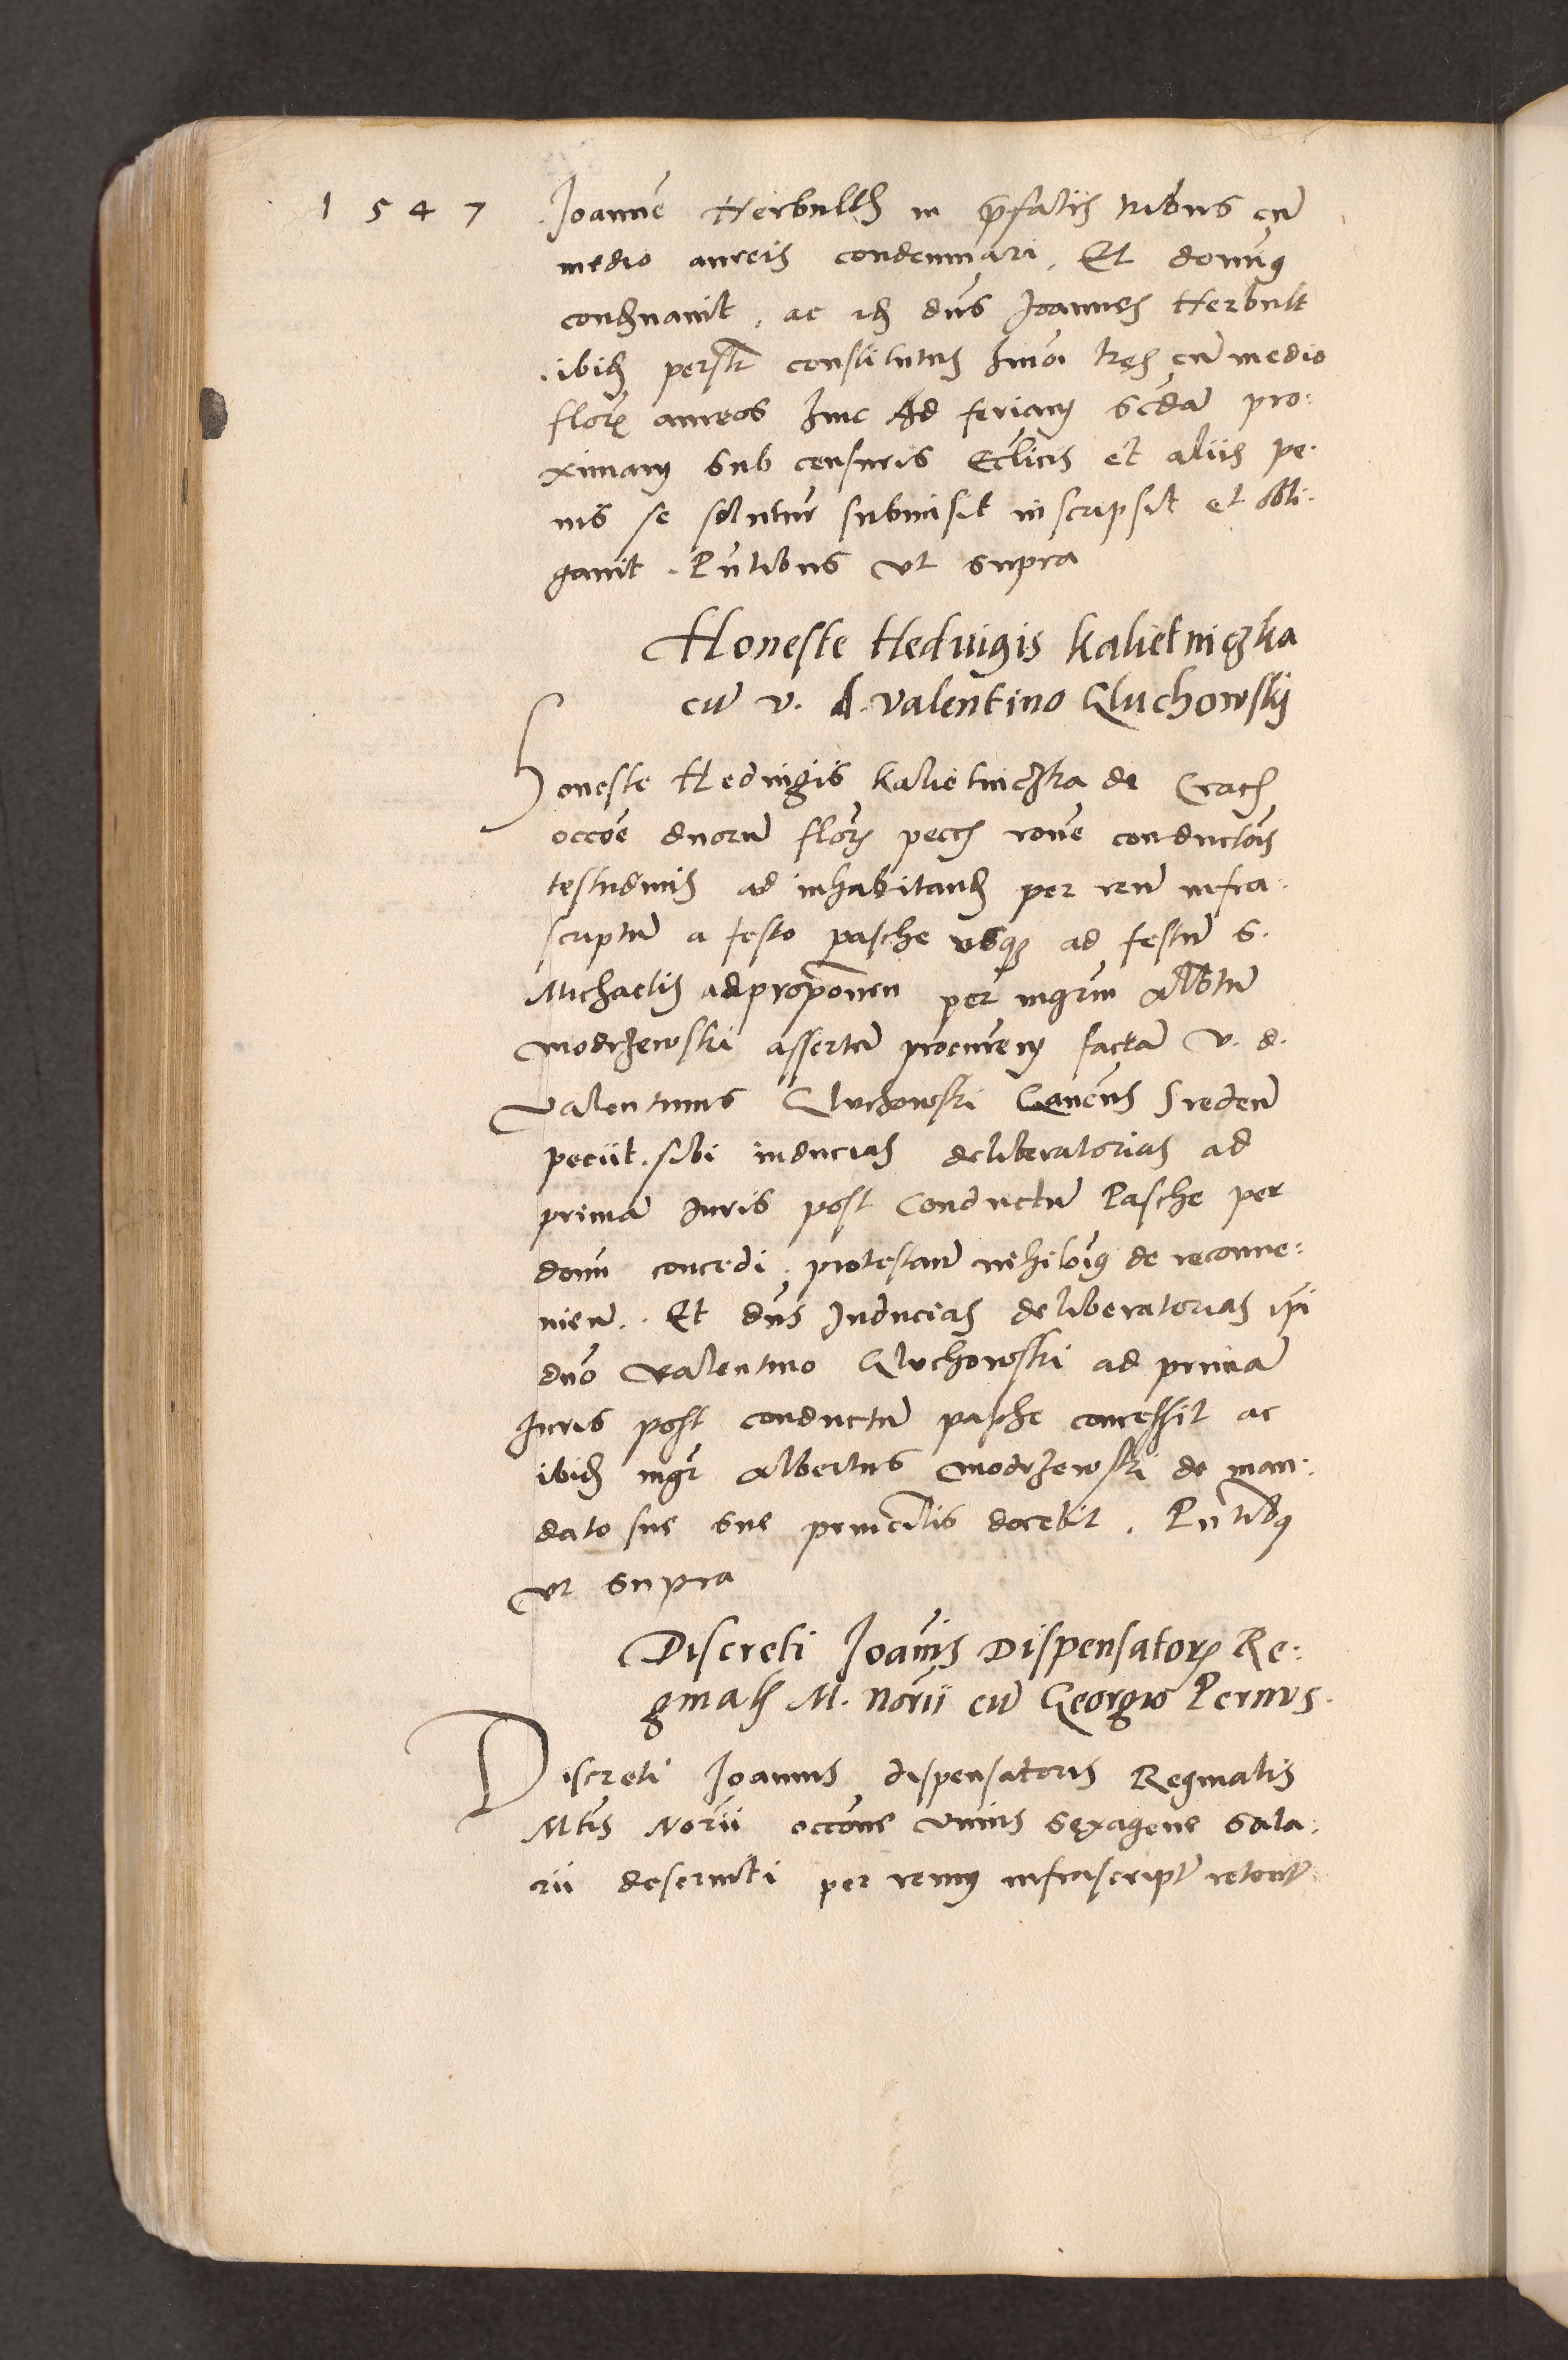 1547
Joanne Herbulth in p̄fatis tribus cū
medio aureis condemnari. Et domūs
condemnavit. ac idē dn̄s Joannes Herbult
ibidē persl̄r constitutus huoī tres cū medio
flor. aureos hinc Ad feriam scdā pro:
ximam sub censuris Ecclīcis et aliis pe:
nis se soluturū submisit inscripsit et obli:
gavit. Pn̄tibus ut supra
Honeste Hedvigis Kalietniczka
cū v. d. valentino Gluchowskij
Honeste Hedvigis Kalietniczka de Crac.
occōe duorū flor. pecc. rōne conductōis
testudinis ad inhabitandū per reū infra:
scriptū a festo pasche usq̨ ad festū s.
Michaelis ad proponen per mgrūm Albtū
modrzewski assertū procurem factā v. d.
valentinus Gluchowski Canēus Sredeñ
peciit sibi inducias deliberatorias ad
primā Juris post Conductū Pasche per
donū concedi. protestanū nihilōīq de reconve:
nieñ. Et dn̄s Inducias deliberatorias ip̄i
dn̄o valentino Gluchowski ad primā
Juris post conductū pasche concessit ac
ibidē mgr̄ Albertus modrzewski de man:
dato sue principalis docebit. Pn̄tibq
ut supra
Discreti Joānis Dispensatorꝭ Re:
ginalꝭ M. Norii cū Georgio Pernus.
Discreti Joannis dispensatoris Reginalis
Mtis Norii occōne unius sexagene sala:
rii deserviti per reum infrascriptū retent